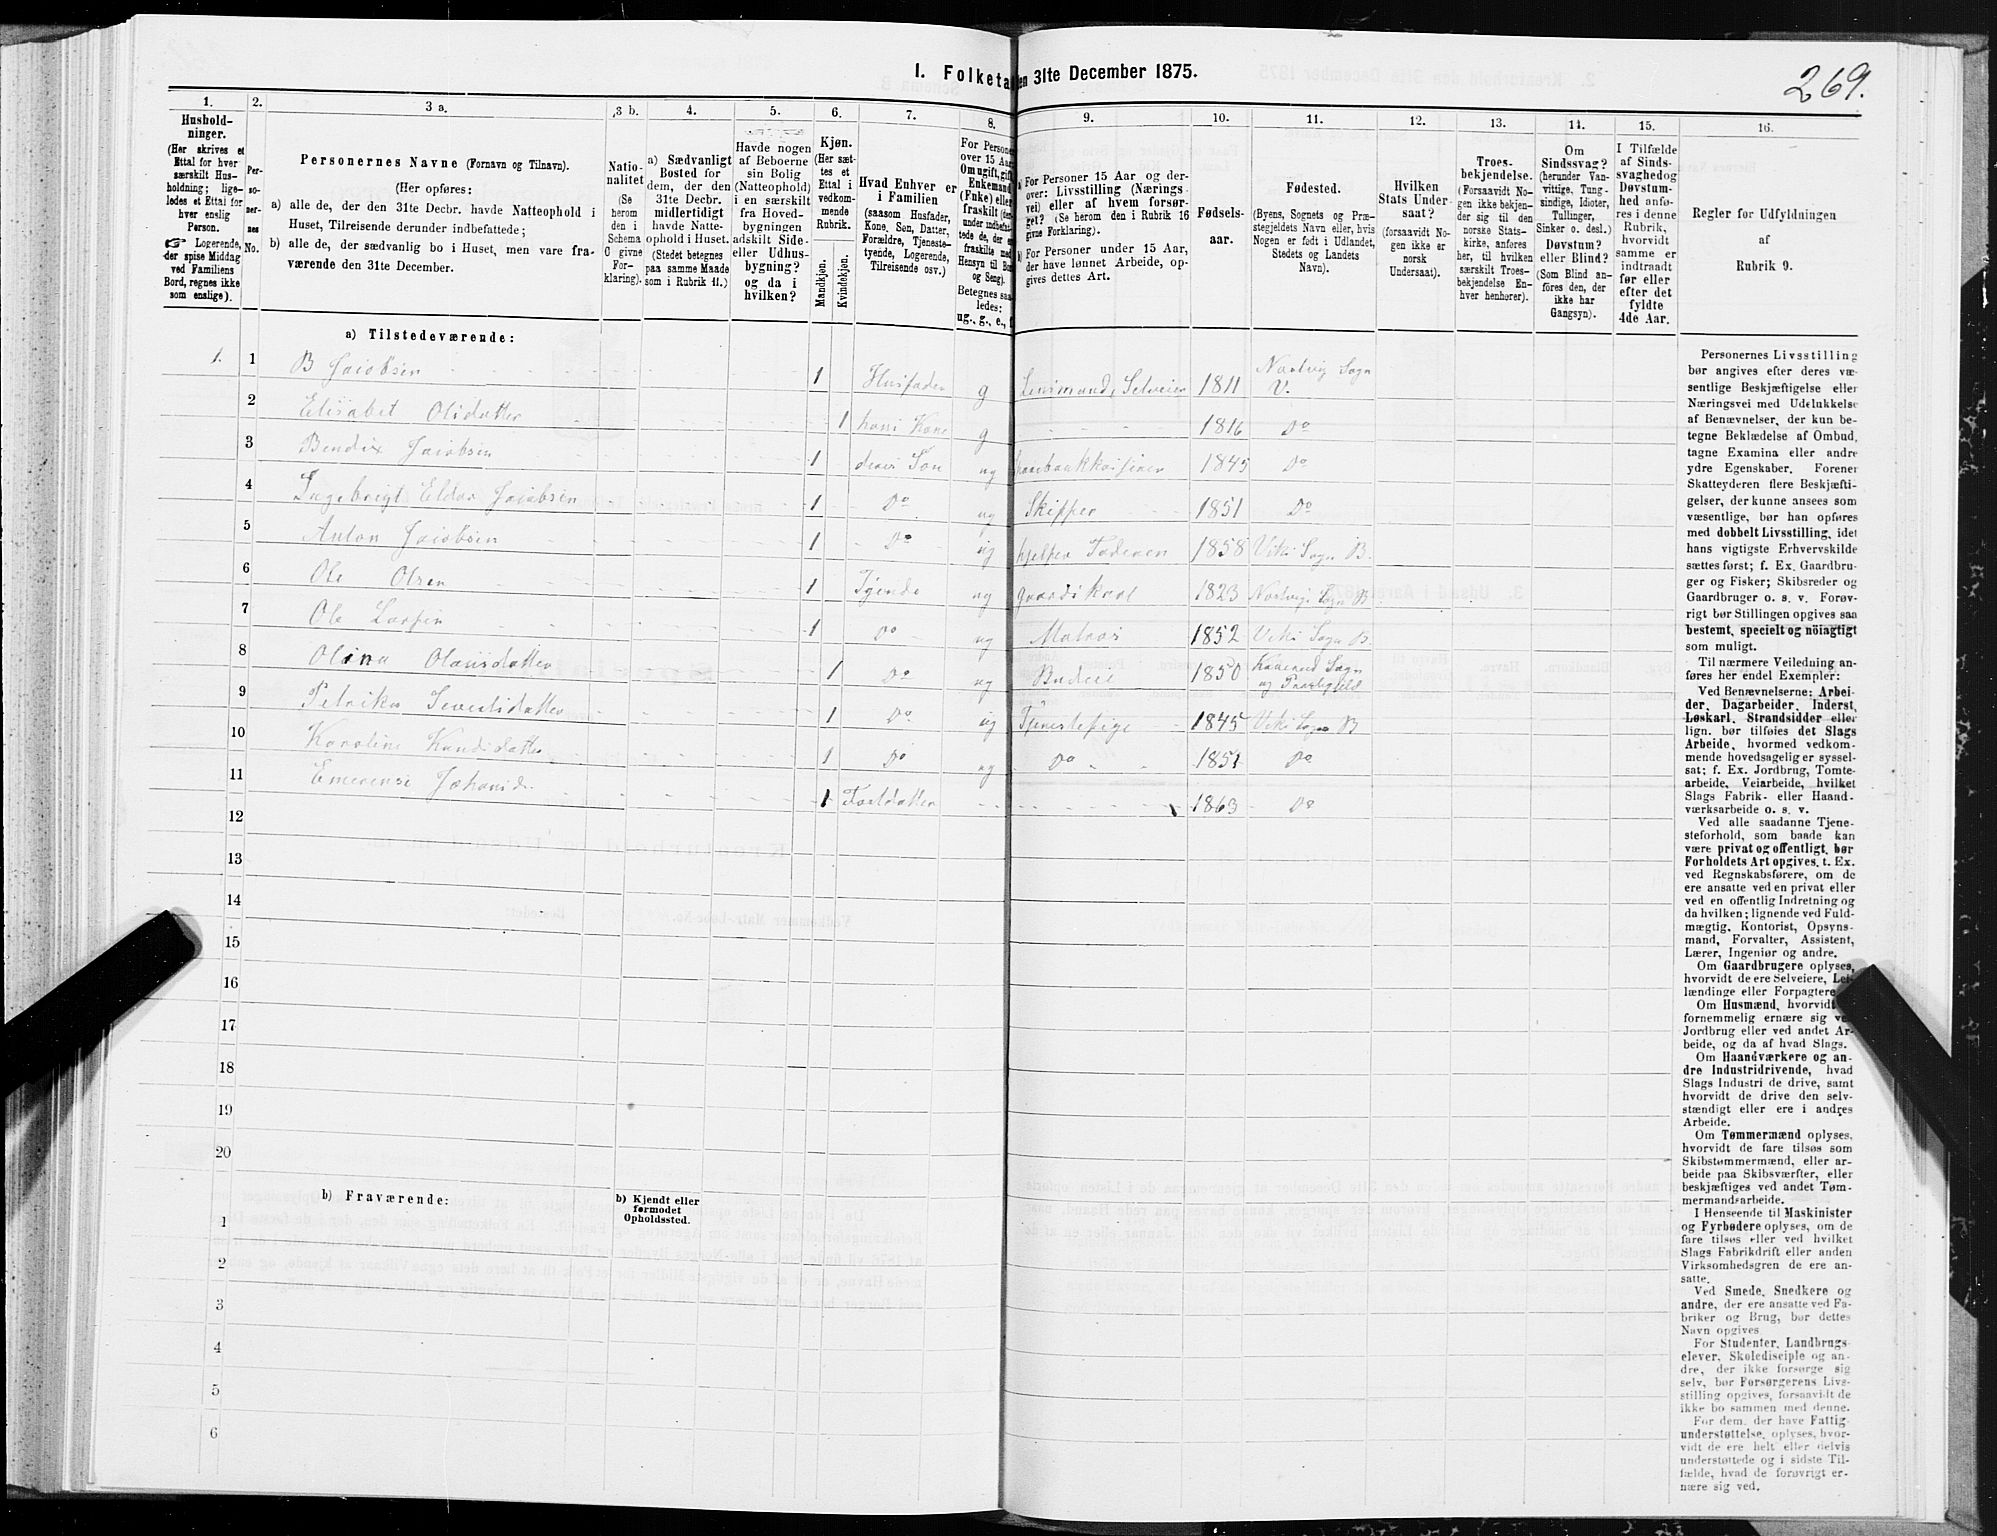 I. Folketa en 31te December 1875.
269.
1. 2. 3 a. 3 b. 4. 5. 6. 7. 8. 9. 10. 11. 12. 13. 14. 15. 16.
Hushold-
ninger.
(Her skrives et
Ettal for hver
særskilt Hus-
holdning; lige-
ledes et Ettal for
hver enslig
Person.
☞ Logerende,
der spise Middag
ved Familiens
Bord, regnes ikke
som enslige).
Per-
so-
ner-
nes
No.
Personernes Navne (Fornavn og Tilnavn).
(Her opføres:
a) alle de, der den 31te Decbr. havde Natteophold i
Huset, Tilreisende derunder indbefattede;
b) alle de, der sædvanlig bo i Huset, men vare fra-
værende den 31te December.
Natio-
nalitet
(Se
herom
den i
Schema
C givne
For-
klaring).
a) Sædvanligt
Bosted for
dem, der den
31te Decbr.
midlertidigt
havde Natte-
ophold i Huset.
(Stedet betegnes
paa samme Maade
som i Rubrik 11.)
Havde nogen
af Beboerne
sin Bolig
(Natteophold)
i en særskilt
fra Hoved-
bygningen
adskilt Side-
eller Udhus-
bygning?
og da i
hvilken?
Kjøn.
(Her sæt-
tes et
Ettal i
vedkom-
mende
Rubrik.
Mandkjøn.
Kvindekjøn.
Hvad Enhver er
i Familien
(saasom Husfader,
Kone, Søn, Datter,
Forældre, Tjeneste-
tyende, Logerende,
Tilreisende osv.)
For Personer
over 15 Aar:
Om ugift, gift,
Enkemand
(Enke) eller
fraskilt
Betegnes saa-
ledes:
ug., g., e., f.
a) For Personer 15 Aar og der-
over: Livsstilling (Nærings-
vei) eller af hvem forsør-
get? (Se herom den i Rubrik 16
givne Forklaring).
b) For Personer under 15 Aar,
der have lønnet Arbeide, op-
gives dettes Art.
Fødsels-
aar.
Fødested.
(Byens, Sognets og Præ-
stegjeldets Navn eller, hvis
Nogen er født i Udlandet,
Stedets og Landets
Navn).
Hvilken
Stats Under-
saat?
(forsaavidt No-
gen ikke er
norsk
Undersaat).
Troes-
bekjendelse.
(Forsaavidt No-
gen ikke bekjen-
der sig til den
norske Stats-
kirke, anføres
her, til hvilken
særskilt Troes-
bekjendelse En-
hver henhører).
Om
Sindssvag?
(herunder Van-
vittige, Tung-
sindige, Idioter,
Tullinger,
Sinker o. desl.)
Døvstum?
eller Blind?
(Som Blind an-
føres den, der
ikke har
Gangsyn).
I Tilfælde
af Sinds-
svaghed og
Døvstum-
hed anfø-
res i denne
Rubrik,
hvorvidt
samme er
indtraadt
før eller
efter det
fyldte
4de Aar.
Regler for Udfyldningen
af
Rubrik 9.
a) Tilstedeværende:
1. 1 B Jacobsen 1 Husfader g Lensmand, Selveier 1811 Sogn V.
2 Elisabet Olsdatter 1 hans Kone g 1816 Do
3 Bendix Jacobsen 1 deres Søn ug 1845 Do
4 Ingebrigt Eldar Jacobsen 1 Do ug Skipper 1851 Do
5 Anton Jacobsen 1 Do ug hjelper Faderen 1858 Viks Sogn B.
6 Ole Olsen 1 Tjende ug gaardskarl 1823 Sogn B
7 Ole Larsen 1 Do ug Matros 1852 Viks Sogn B.
8 Olina Olausdatter 1 Do ug Budeie 1850 Sogn og Præstegjeld
9 Petrika 1 Do ug Tjenestepige 1845 Viks Sogn B
10 Karoline 1 Do ug Do 1851 Do
11 Emerense Johansd. 1 Fostdatter 1863 Do
12
13
14
15
16
17
18
19
20
b) Fraværende:
b) Kjendt eller
formodet
Opholdssted.
1
2
3
4
5
6
Personernes Livsstilling
bør angives efter deres væ-
sentlige Beskjæftigelse eller
Næringsvei med Udelukkelse
af Benævnelser, der kun be-
tegne Beklædelse af Ombud,
tagne Examina eller andre
ydre Egenskaber. Forener
Skatteyderen flere Beskjæfti-
gelser, der kunne ansees som
væsentlige, bør han opføres
med dobbelt Livsstilling, idet
hans vigtigste Erhvervskilde
sættes først; f. Ex. Gaardbru-
ger og Fisker; Skibsreder og
Gaardbruger o. s. v. Forøv-
rigt bør Stillingen opgives saa
bestemt, specielt og nöiagtigt
som muligt.
Til nærmere Veiledning an-
føres her endel Exempler:
Ved Benævnelserne: Arbei-
der, Dagarbeider, Inderst,
Løskarl, Strandsidder eller
lign. bør tilføies det Slags
Arbeide, hvormed vedkom-
mende hovedsagelig er syssel-
sat; f. Ex. Jordbrug, Tomte-
arbeide, Veiarbeide, hvilket
Slags Fabrik- eller Haand-
værksarbeide o. s. v.
Ved alle saadanne Tjene-
steforhold, som baade kan
være privat og offentligt, bør
Forholdets Art opgives, t. Ex.
ved Regnskabsførere, om de
ere ansatte ved en privat eller
ved en offentlig Indretning og
da hvilken; lignende ved Fuld-
mægtig, Kontorist, Opsyns-
mand, Forvalter, Assistent,
Lærer, Ingeniør og andre.
Om Gaardbrugere oplyses,
hvorvidt de ere Selveiere, Lei-
lændinge eller Forpagtere.
Om Husmænd, hvorvidt
fornemmelig ernære sig ved
Jordbrug eller ved andet Ar-
beide, og da af hvad Slags.
Om Haandværkere og an-
dre Industridrivende, hvad
Slags Industri de drive, samt
hvorvidt de drive den selv-
stændigt eller ere i andres
Arbeide.
Om Tømmermænd oplyses,
hvorvidt de fare tilsøs som
Skibstømmermænd, eller ar-
beide paa Skibsværfter, eller
beskjæftiges ved andet Tøm-
mermandsarbeide.
I Henseende til Maskinister
og Fyrbødere oplyses, om de
fare tilsøs eller ved hvilket
Slags Fabrikdrift eller anden
Virksomhedsgren de ere an-
satte.
Ved Smede, Snedkere og
andre, der ere ansatte ved Fa-
briker og Brug, bør dettes
Navn opgives
For Studenter, Landbrugs-
elever, Skoledisciple og an-
dre, der ikke forsørge sig
selv, bør Forsørgerens Livs-
stilling opgives, forsaavidt de
ikke bo sammen med denne.
For dem, der have Fattig-
understøttelse, oplyses, hvor-
vidt de ere helt eller delvis
understøttede og i sidste Til-
fælde, hvad de forøvrigt er-
nære sig ved.